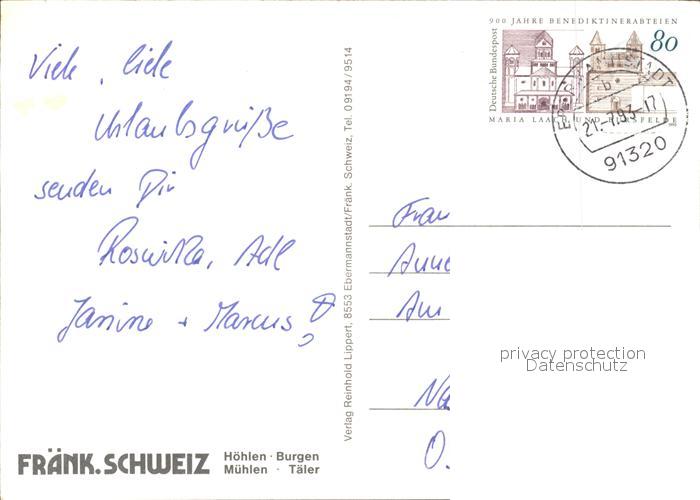 Viele, liebe
Urlaubsgrüße
senden Dir
Roswitha, Adl
Janine + Marcus
FRÄNK. SCHWEIZ
Höhlen · Burgen
Mühlen · Täler
Verlag Reinhold Lippert, 8553 Ebermannstadt/Fränk. Schweiz, Tel. 09194/9514
900 JAHRE BENEDIKTINERABTEIEN
80
Deutsche Bundespost
MARIA LAACH UND BURSFELDE
EBERMANNSTADT
b
21.-7.93-17
91320
Frau
Anne
Am
O.
privacy protection
Datenschutz